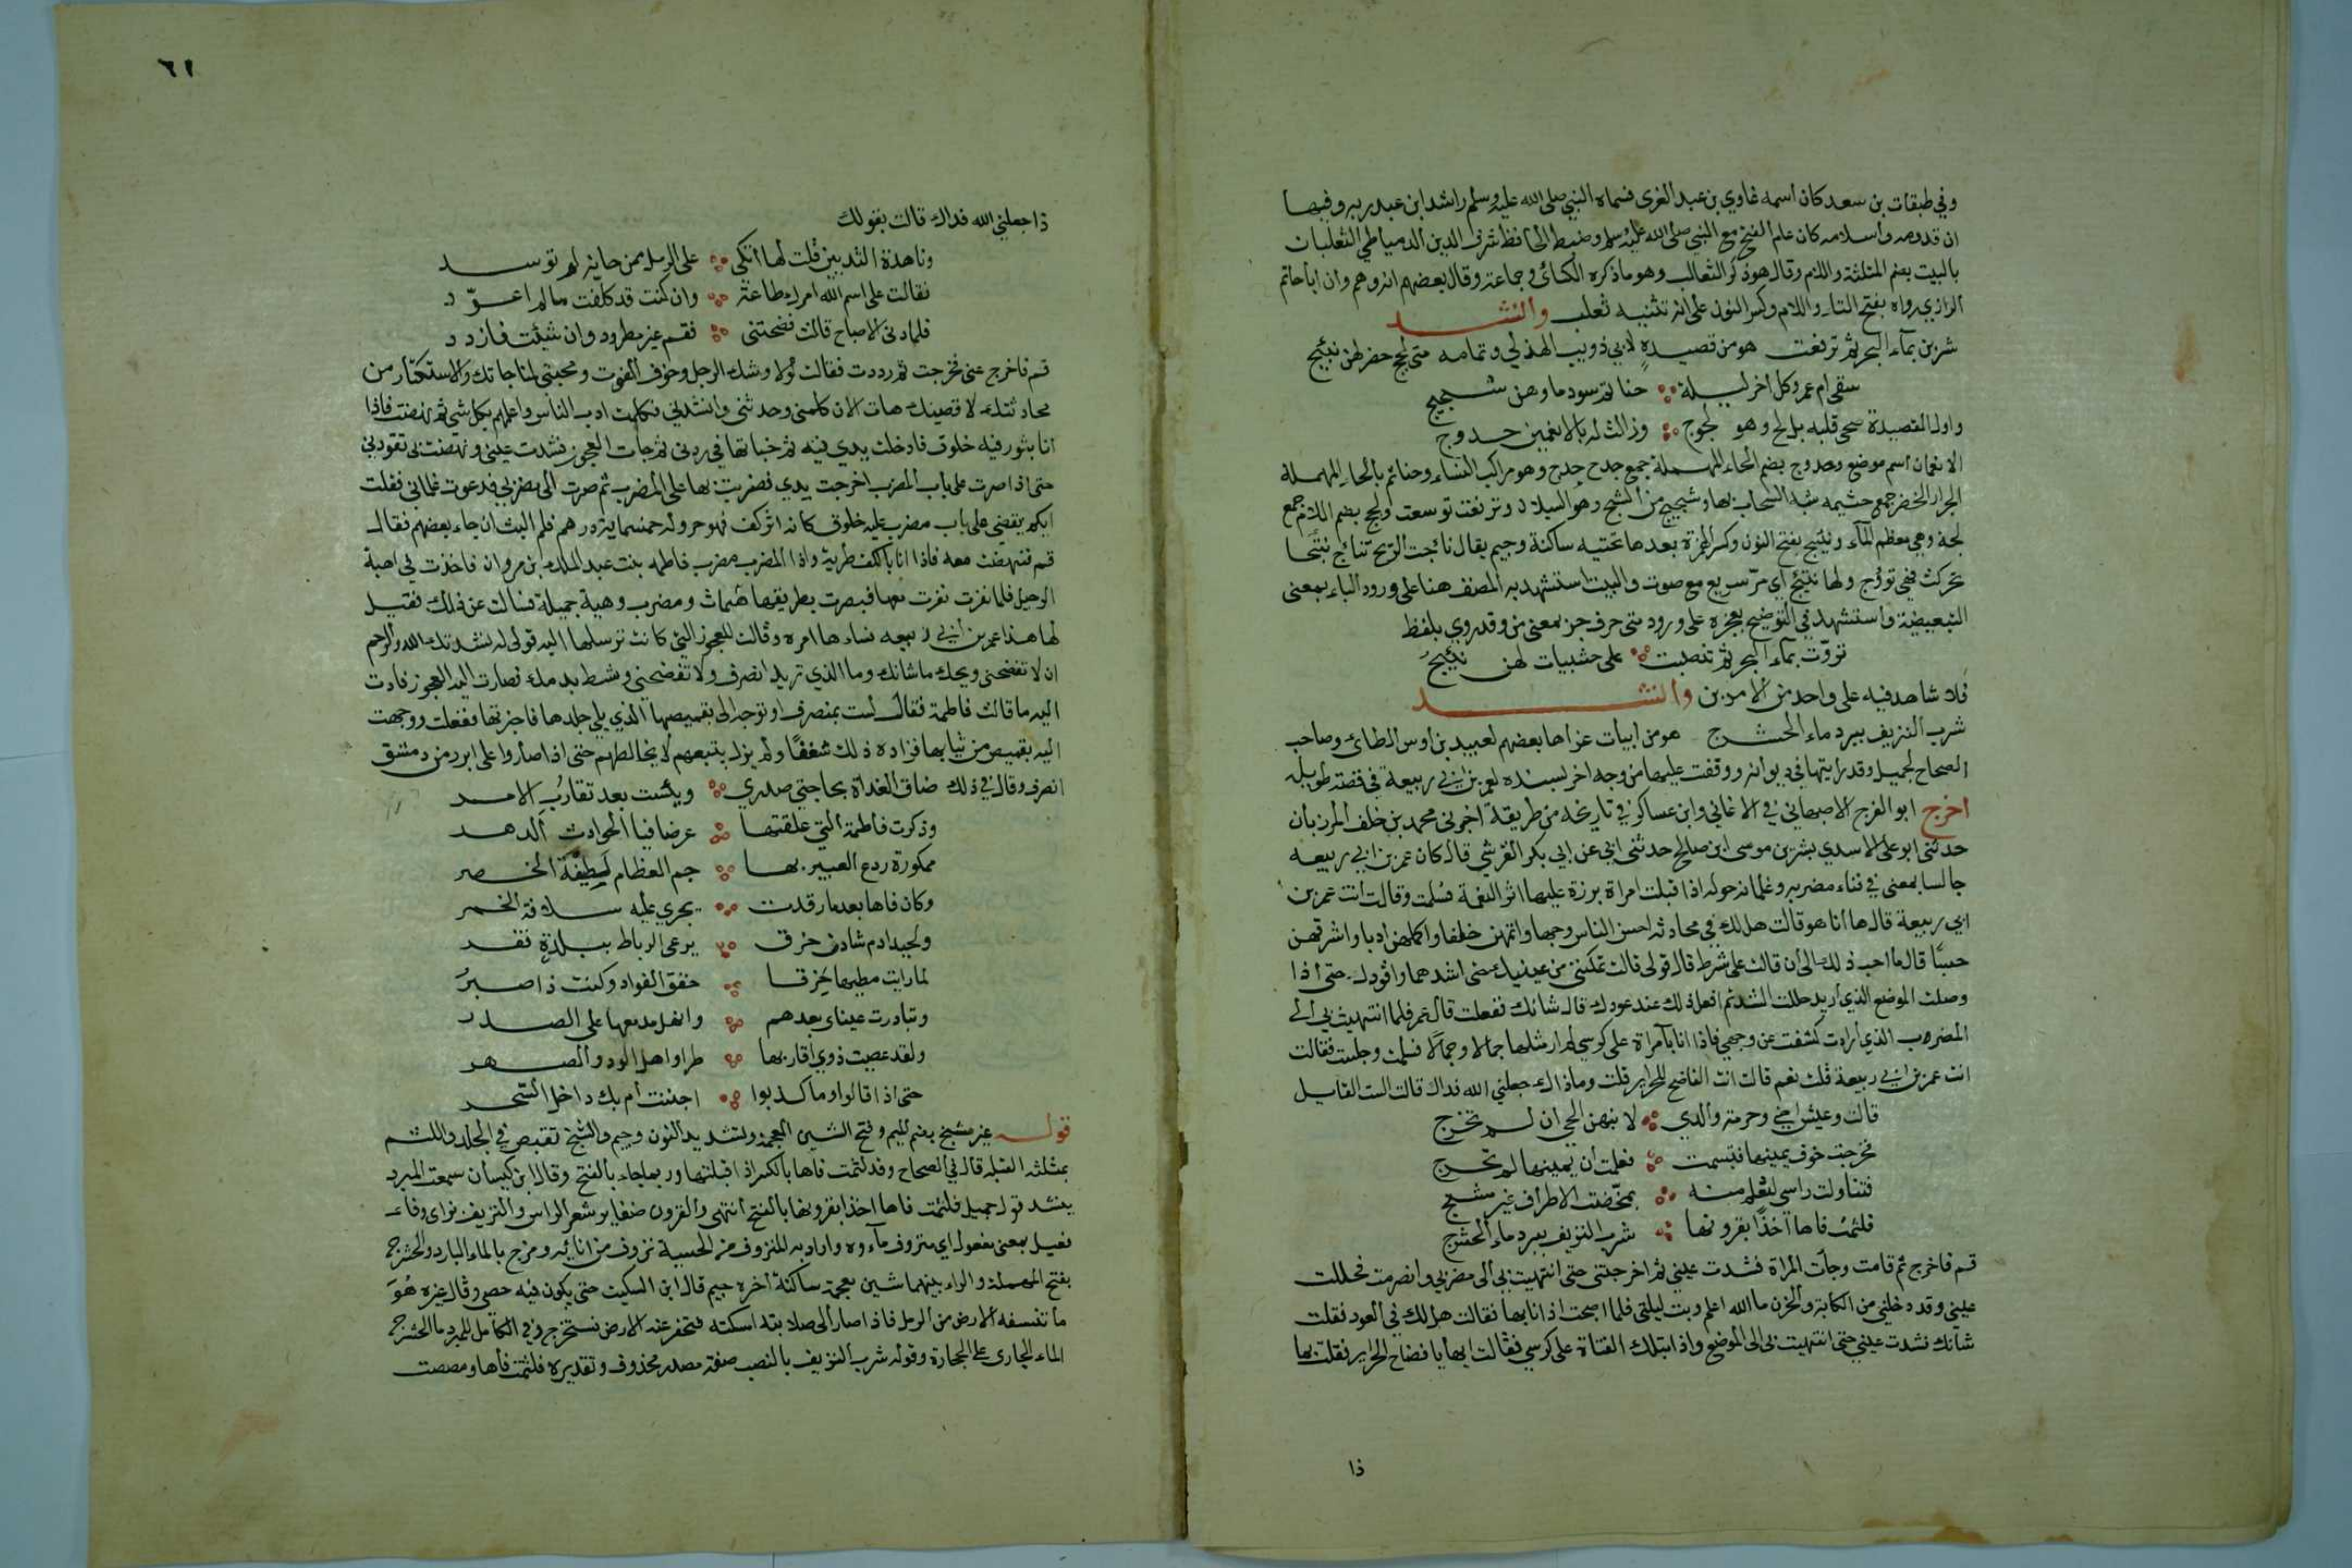 وفي طبقات بن سعد كان اسمه غاوي بن عبد العزى فسماه النبي صلى الله عليه وسلم راشد ابن عبد ربه وفيها
ان قدومه واسلامه كان عام الفتح مع النبي صلى الله عليه وسلم وضبط الحافظ شرف الدين الدمياطي الثعلبان
بالبيت بضم المثلثة واللام وقال هو ذكر الثعالب وهو ما ذكره الكسائي وجماعة وقال بعضهم انه وهم وان ابا حاتم
الرازي رواه بفتح الثاء واللام وكسر النون على انه تثنيه ثعلب وانشد
شربن بماء البحر ثم ترفعت هو من قصيدة لابي ذويب الهذلي وتمامه متى لجج خضر لهن نئيج
سقى ام عمرو كل اخر ليلة حناتم سود ماوهن ثجيج
واول القصيدة صحى قلبه بل لج وهو لجوج وزالت له بالانعمين حدوج
الانعمان اسم موضع وحدوج بضم الحاء المهملة جمع حدج وهو مراكب النساء وحناتم بالحاء المهملة
الجرار الخضر جمع شبه السحاب بها وثجيج من الثج وهو السيلان وترفعت توسعت ولجج بضم اللام جمع
لجة وهي معظم الماء ونئيج بفتح النون وكسر الهمزة بعدها تحتيه ساكنة وجيم يقال نأجت الريح تنأج نئجا
تحركت فهي نؤوج ولها نئيج اي مر سريع مع صوت والبيت استشهد به المصنف هنا على ورود الباء بمعنى
التبعيضية واستشهد في التوضيح بعجزه على ورود متى حرف جر بمعنى من وقد روي بلفظ
تروت بماء البحر ثم تنصبت على حشيات لهن نئيج
فلا شاهد فيه على واحد من الامرين وانشد
شرب النزيف ببرد ماء الحشرج هو من ابيات عزاها بعضهم لعبيد بن اوس الطائي وصاحب
الصحاح لجميل وقد رايتها في ديوانه ووقفت عليها من وجه اخر بسنده لعمر بن ابي ربيعة في قصة طويلة
اخرج ابو الفرج الاصبهاني في الاغاني وابن عساكر في تاريخه من طريقة اخبرني محمد بن خلف المرزبان
حدثني ابو علي الاسدي بشر بن موسى ابن صالح حدثني ابي عن ابي بكر القرشي قال كان عمر بن ابي ربيعه
جالسا بمعنى في فناء مضربه وغلمانه حوله اذا قبلت امراة برزة عليها اثر النعمة فسلمت وقالت انت عمر بن
ابي ربيعة قال ها انا هو قالت هل لك في محادثه احسن الناس وجها واتمهن خلقا واكملهن ادبا واشرفهن
حسبا قال ما احب ذلك الي أن قالت على شرط قال قولي قالت تمكنني من عينيك حتى اشدهما واقودك حتى اذا
وصلت الموضع الذي اريد حللت الشد ثم افعل ذلك عند عودك قال شانك ففعلت قال عمر فلما انتهيت بي الى
المضروب الذي ارادت كشفت عن وجهي فاذا انا بامراة على كرسي لم ار مثلها جمالا وكمالا فسلمت وجلست فقالت
انت عمر بن ابي ربيعة قلت نعم قالت انت الفاضح للحراير قلت وما ذاك جعلني الله فداك قالت الست القايل
قالت وعيش اخي وحرمة والدي لا نبهن الحي ان لم تخرج
فخرجت خوف يمينها فتبسمت فعلمت أن يمينها لم تحرج
فتناولت راسي لتعلم مسه بمخضب الاطراف غير مشنج
فلثمت فاها آخذًا بقرونها شرب النزيف ببرد ماء الحشرج
قم فاخرج ثم قامت وجات المراة فشدت عيني ثم اخرجتني حتى انتهيت بي الى مضربي وانصرفت فحللت
عيني وقد دخلني من الكابة والحزن ما الله اعلم وبت ليلتي فلما اصبحت اذا انا بها فقالت هل لك في العود فقلت
شأنك فشدت عيني حتى انتهيت بي الى الموضع واذا بتلك الفتاة على كرسي فقالت ايها يا فضاح الحراير فقلت بما
ذا
٦١
ذا جعلني الله فداك قالت بقولك
وناهدة الثديين قلت لها اتكي على الرمل من جبانه لم توسد
فقالت على اسم الله امرك طاعة وان كنت قد كلفت ما لم اعود
فلما دنى الاصباح قالت فضحتني فقم غير مطرود وان شئت فازدد
قم فاخرج عني فخرجت ثم رددت فقالت لولا وشك الرحيل وخوف الفوت ومحبتي لمناجاتك والاستكثار من
محادثتك لاقصينك هات الان كلمني وحدثني وانشدني فكلمت ادب الناس واعلمهم بكل شي ثم نهضت فاذا
انا بتور فيه خلوق فادخلت يدي فيه ثم خباتها في ردني ثم جات العجوز فشدت عيني ونهضت بي تقودني
حتى اذا صرت على باب المضرب اخرجت يدي فضربت بها على المضرب ثم صرت الى مضربي فدعوت غلماني فقلت
ايكم يقفني على باب مضرب عليه خلوق كانه اثر كف فهو حر وله خمسماية درهم فلم البث ان جاء بعضهم فقال
قم فنهضت معه فاذا انا بالكف طرية واذا المضرب مضرب فاطمه بنت عبد الملك بن مروان فاخذت في اهبة
الرحيل فلما نفرت نفرت معها فبصرت بطريقها بقباب ومضرب وهية جميلة فسالت عن ذلك فقيل
لها هذا عمر بن ابي ربيعه فساءها امره وقالت للعجوز التي كانت ترسلها اليه قولي له نشدتك الله والرحم
ان لا تفضحني ويحك ما شانك وما الذي تريد انصرف ولا تفضحني وتشط بدمك فصارت اليه العجوز فادت
اليه ما قالت فاطمة فقال لست بمنصرف او توجه الي بقميصها الذي يلي جلدها فاخبرتها ففعلت ووجهت
اليه بقميص من ثيابها فزاده ذلك شغفًا ولم يزل يتبعهم لا يخالطهم حتى اذا صاروا على ابرد من دمشق
انصرف وقال في ذلك ضاق الغداة بحاجتي صدري ويئست بعد تقارب الامر
وذكرت فاطمة التي علقتها عرضا فيا لحوادث الدهر
ممكورة ردع العبير بها جم العظام لطيفة الخصر
وكان فاها بعدما رقدت يجري عليه سلافة الخمر
وبجيد ادم شادن خرق يرعى الرباط ببلدة قفر
لما رايت مطيها خرقا خفق الفواد وكنت ذا صبر
وتبادرت عيناي بعدهم وانهل مدمعها على الصدر
ولقد عصيت ذوي اقاربها طرا واهل الود والصهر
حتى اذا قالوا وما كذبوا اجننت أم بك داخل السحر
قوله غير مشنج بضم الميم وفتح الشين المعجمة وتشديد النون وجيم والشنج تقبض في الجلد واللثم
بمثلثه القبله قال في الصحاح وقد لثمت فاها بالكسر اذا قبلتها وربما جاء بالفتح وقال ابن كيسان سمعت المبرد
ينشد قول جميل فلثمت فاها اخذا بقرونها بالفتح انتهى والقرون ضفاير شعر الراس والنزيف بزاي وفاء
فعيل بمعنى مفعول اي منزوف ماءه واراد به المنزوف من الحسية نزوف من انائه ومزج بالماء البارد والحشرج
بفتح المهملة والراء بينهما شين معجمة ساكنة اخره جيم قال ابن السكيت حتى يكون فيه حصى وقال غيره هو
ما تنسفه الارض من الرمل فاذا صار الى صلابته امسكته فتحفر عنه الارض فتستخرج وفي الكامل للمبرد ما الحشرج
الماء الجاري على الحجارة وقوله شرب النزيف بالنصب صفة مصدر محذوف وتقديره فلثمت فاها ومصصت